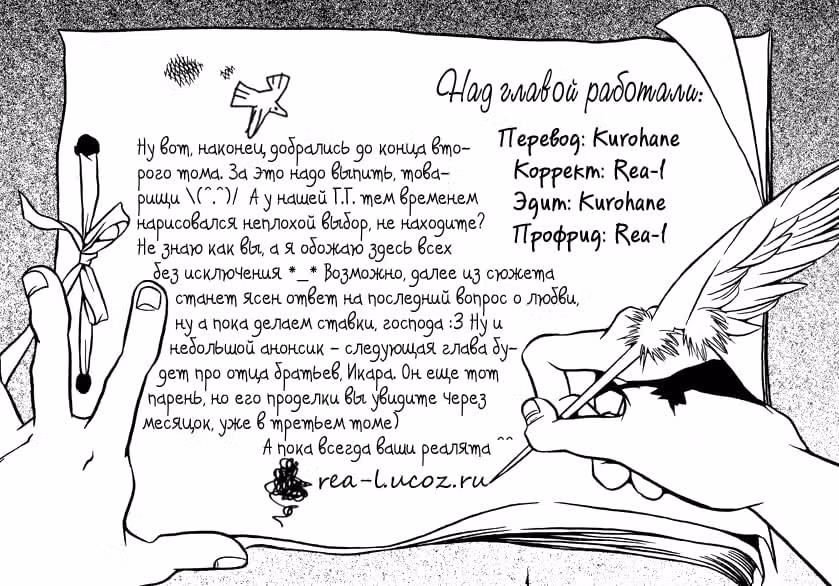 Над главой работали:
Перевод: Kurohane
Коррект: Rea-l
Эдит: Kurohane
Профрид: Rea-l
Ну вот, наконец добрались до конца вто-
рого тома. За это надо выпить, това-
рищи \(^.^)/ А у нашей Г.Г. тем временем
нарисовался неплохой выбор, не находите?
Не знаю как вы, а я обожаю здесь всех
без исключения *_* Возможно, далее из сюжета
станет ясен ответ на последний вопрос о любви,
ну а пока делаем ставки, господа :3 Ну и
небольшой анонсик – следующая глава бу-
дет про отца братьев, Икара. Он еще тот
парень, но его проделки вы увидите через
месяцок, уже в третьем томе)
А пока всегда ваши реалята ^^
rea-l.ucoz.ru